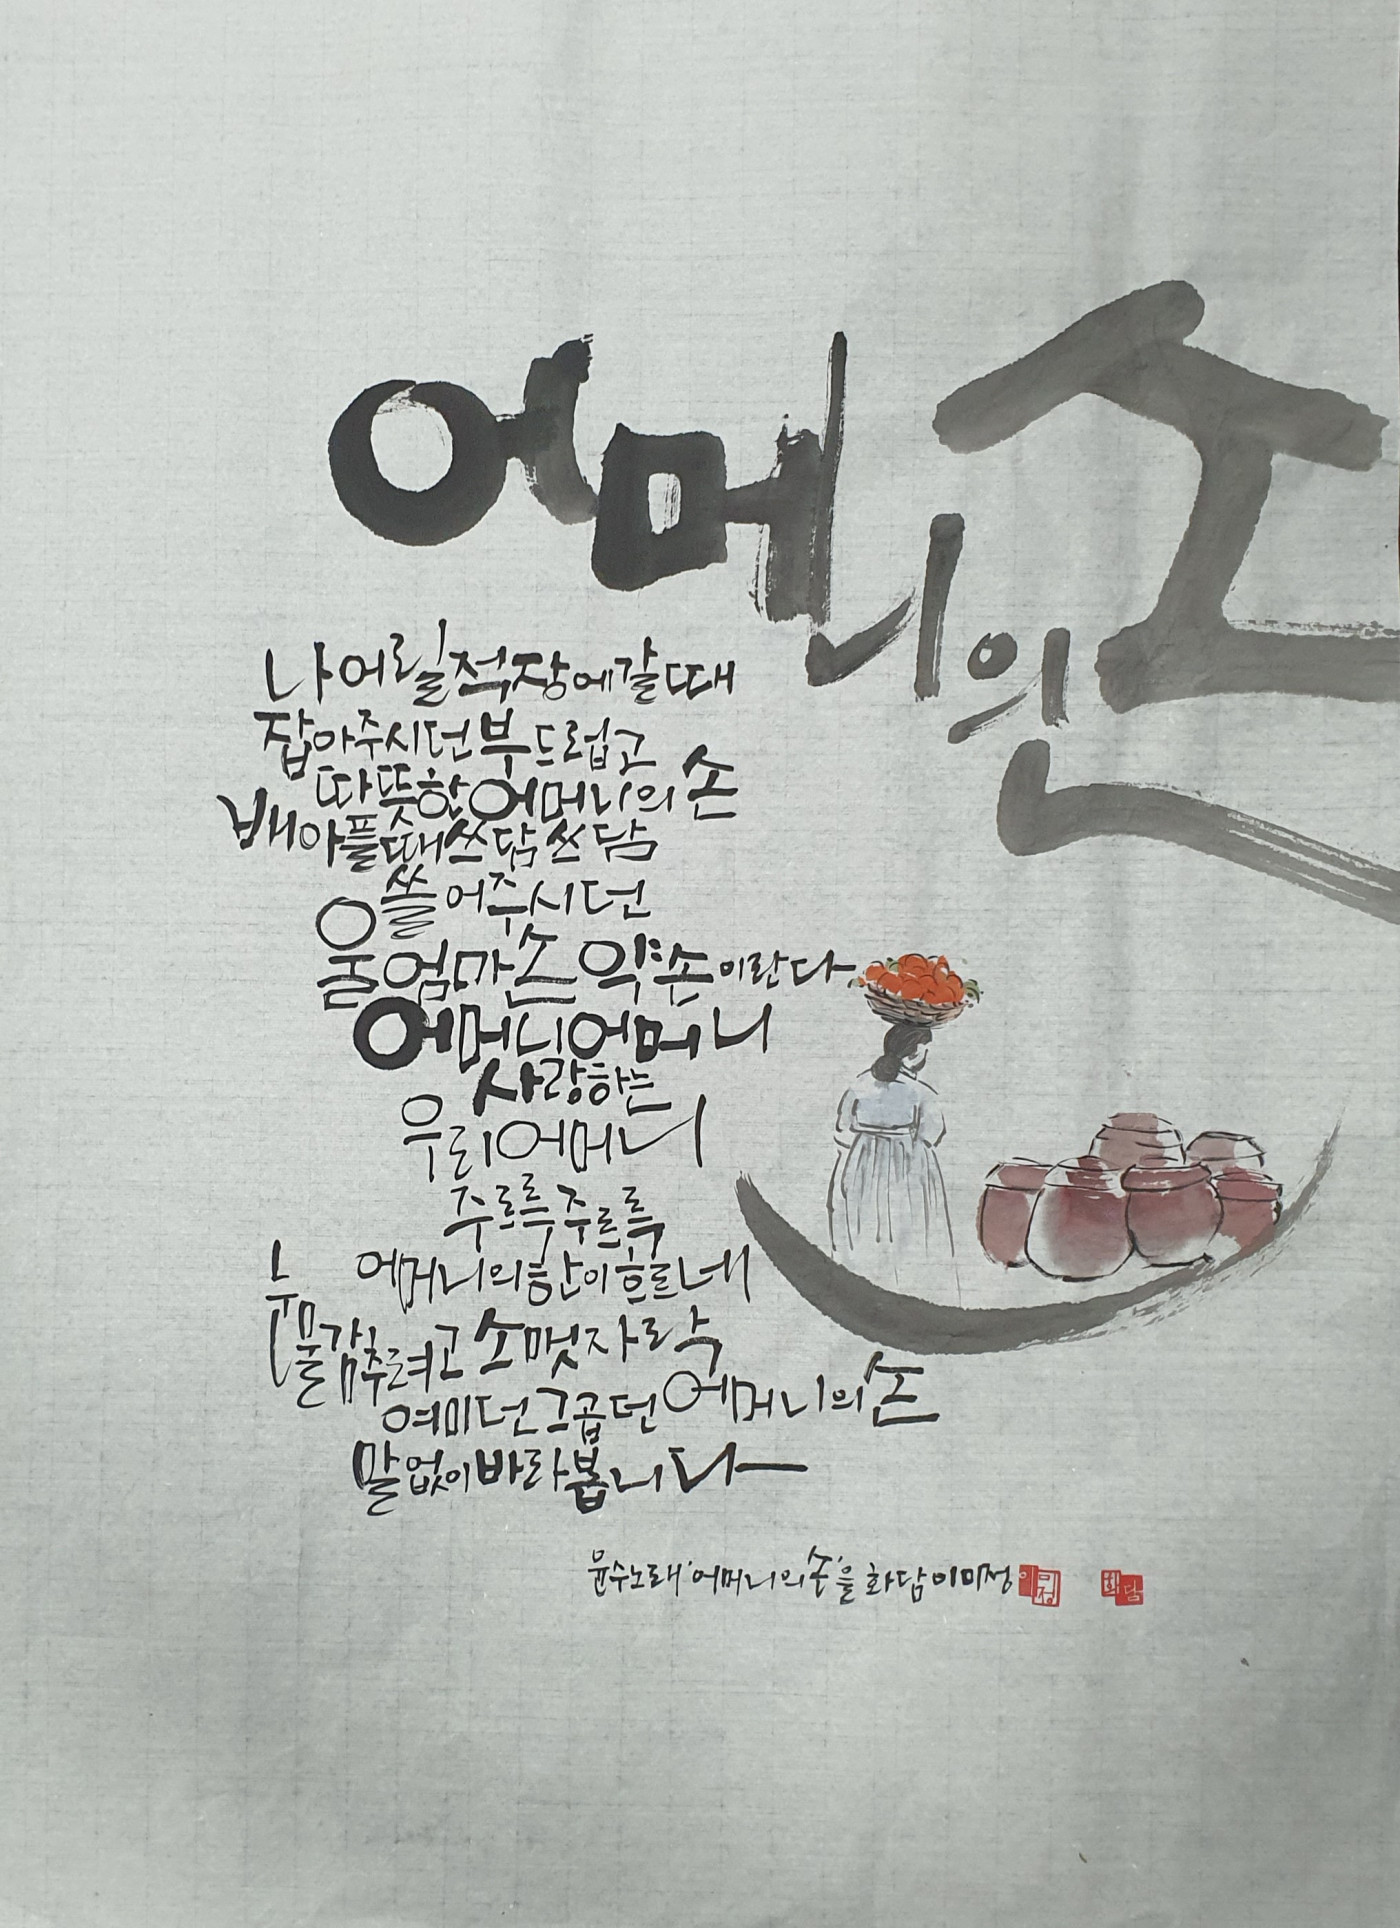 어머니의 손
나 어릴적 장에 갈 때
잡아주시던 부드럽고
따뜻한 어머니의 손
배 아플 때 쓰담 쓰담
쓸어주시던
울 엄마 손 약손이란다
어머니 어머니
사랑하는
우리 어머니
주르륵 주르륵
어머니의 한이 흐르네
눈물 감추려고 소맷자락
여미던 그 곱던 어머니의 손
말없이 바라봅니다
윤수노래 '어머니의 손'을 화담 이미정
이미정
화담